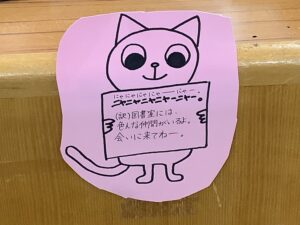 にゃにゃにゃにゃーにゃー。
ニャニャニャニャーニャー。
(訳)図書室には、
色んな仲間がいるよ。
会いに来てねー。